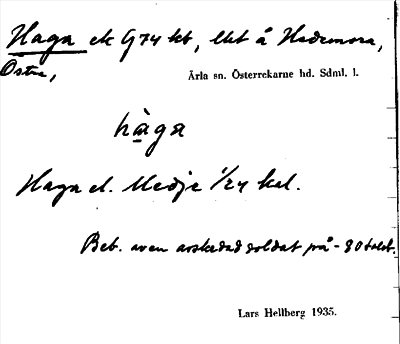 Haga ek G 74 kb, lht å Hedemora,
Östra,
Ärla sn. Österrekarne hd. Sdml. l.
hàga
Haga el. Medje 1/24 kal.
Beb. av en avskedad soldat på - 80 talet.
Lars Hellberg 1935.